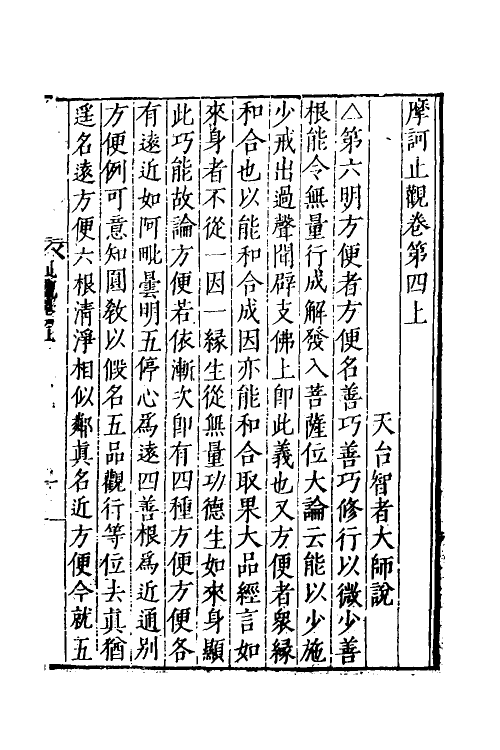 摩訶止觀卷第四上
天台智者大師說
△第六明方便者方便名善巧善巧修行以微少善
根能令無量行成解發入菩薩位大論云能以少施
少戒出過聲聞辟支佛上即此義也又方便者衆緣
和合也以能和合成因亦能和合取果大品經言如
來身者不從一因一緣生從無量功德生如來身顯
此巧能故論方便若依漸次即有四種方便方便各
有遠近如阿毗曇明五停心爲遠四善根爲近通別
方便例可意知圓敎以假名五品觀行等位去眞猶
遥名遠方便六根清淨相似鄰眞名近方便今就五